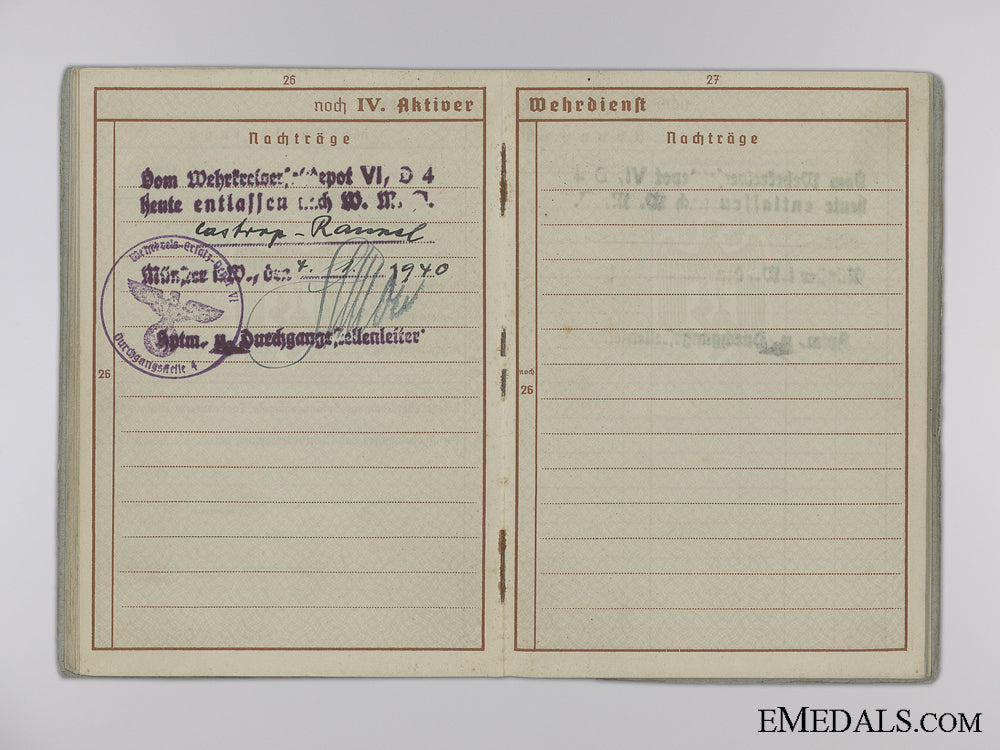 26
noch IV. Aktiver
Nachträge
Vom Wehrkreisers epot VI, D 4
heute entlassen nach W. M. A.
Castrop-Rauxel
Münster i.W., den 4. 1. 1940
Hptm. u. Durchgangsstellenleiter
Wehrkreis-Ersatz- VI
Durchgangsstelle 4
26
27
Wehrdienst
Nachträge
noch
26
EMEDALS.COM